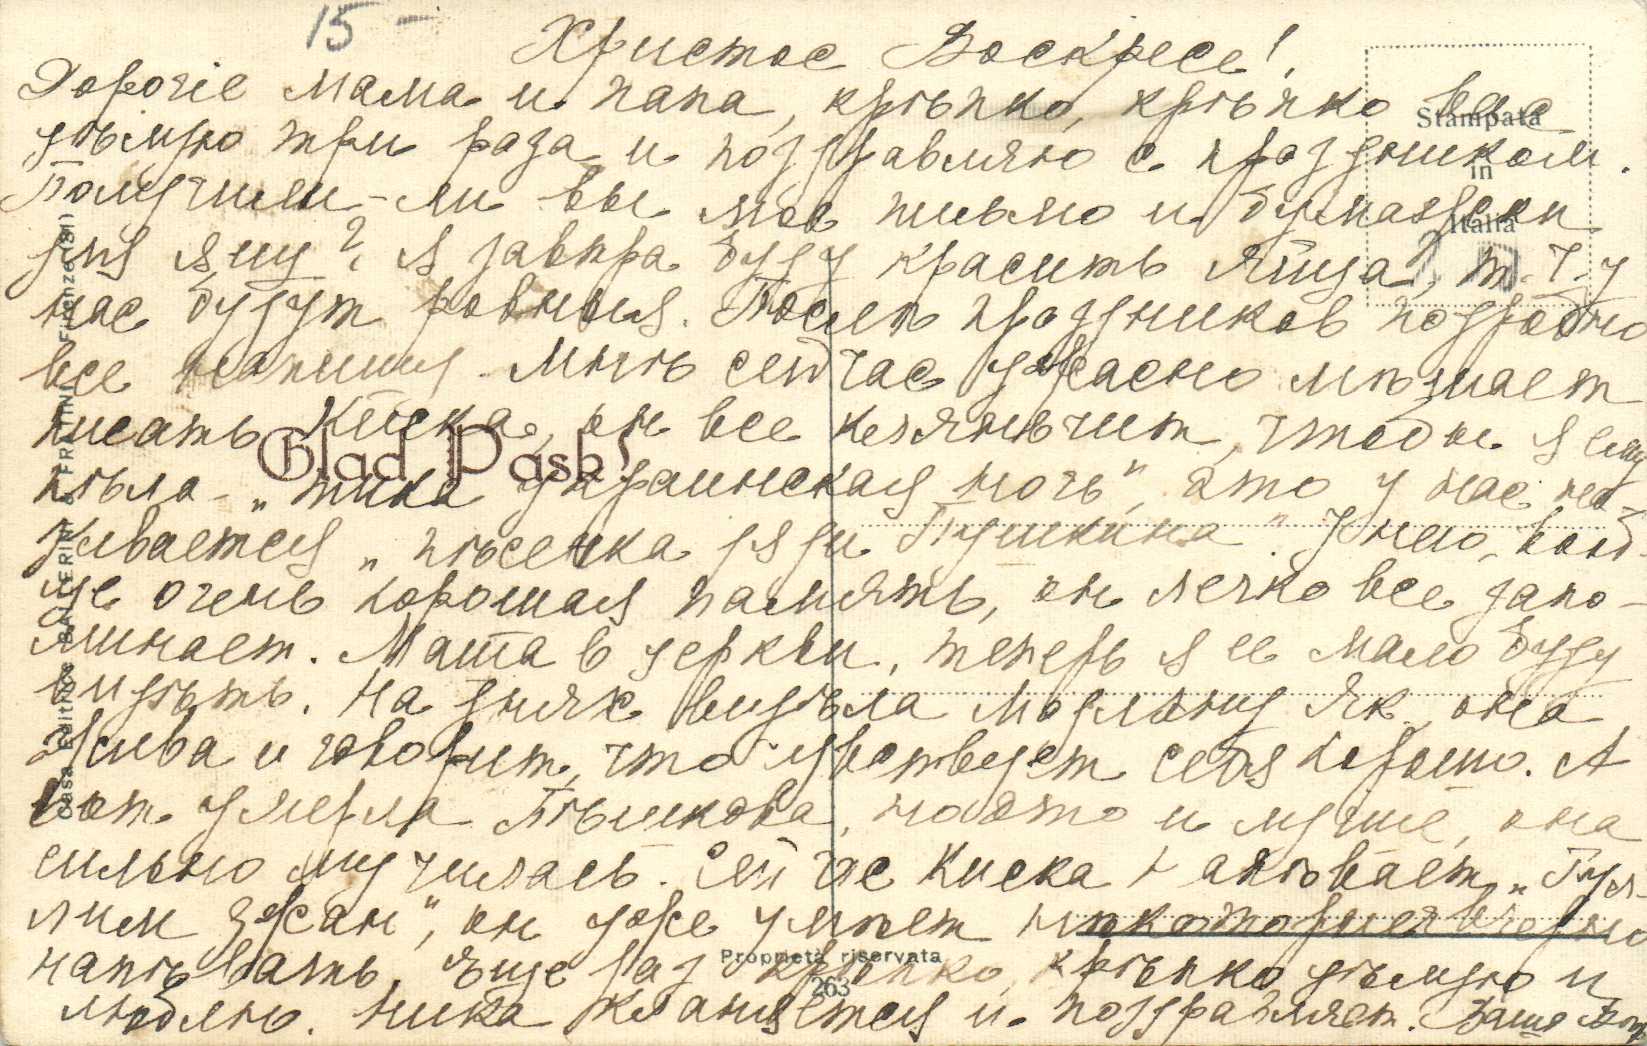 15 -
Христос Воскресе!
Дорогiе мама и папа, крѣпко, крѣпко вас
цѣлую три раза и поздравляю с праздником.
Получили-ли вы мое письмо и бумажки
для яиц? Я завтра буду красить яйца, т.
нас будут ровныя. Послѣ праздников подробно
все напишу. Мнѣ сейчас ужасно мѣшает
писать Киска, он все клянчит, чтобы я ему
пѣла - „тиха украинская ночь", это у нас на-
зывается „пѣсенка дяди Пушкина". У него вооб-
ще очень хорошая память, он легко все запо-
минает. Маша в церкви, теперь я ее мало буду
видѣть. На днях видѣла она
жива и говорит, что чувствует себя хорошо. А
вот умерла Пѣшкова, но это и лучше, она
сильно мучилась. Сейчас Киска напѣвает „Гюл-
лим Джан", он уже умѣет
напѣвать. Еще раз крѣпко, крѣпко цѣлую и
люблю. Ника кланяется и поздравляет. Ваша
Stampata
in
Italia
Glad Påsk!
Casa Editrice BALLERINI & FRATINI - Firenze (31)
Proprietà riservata
263